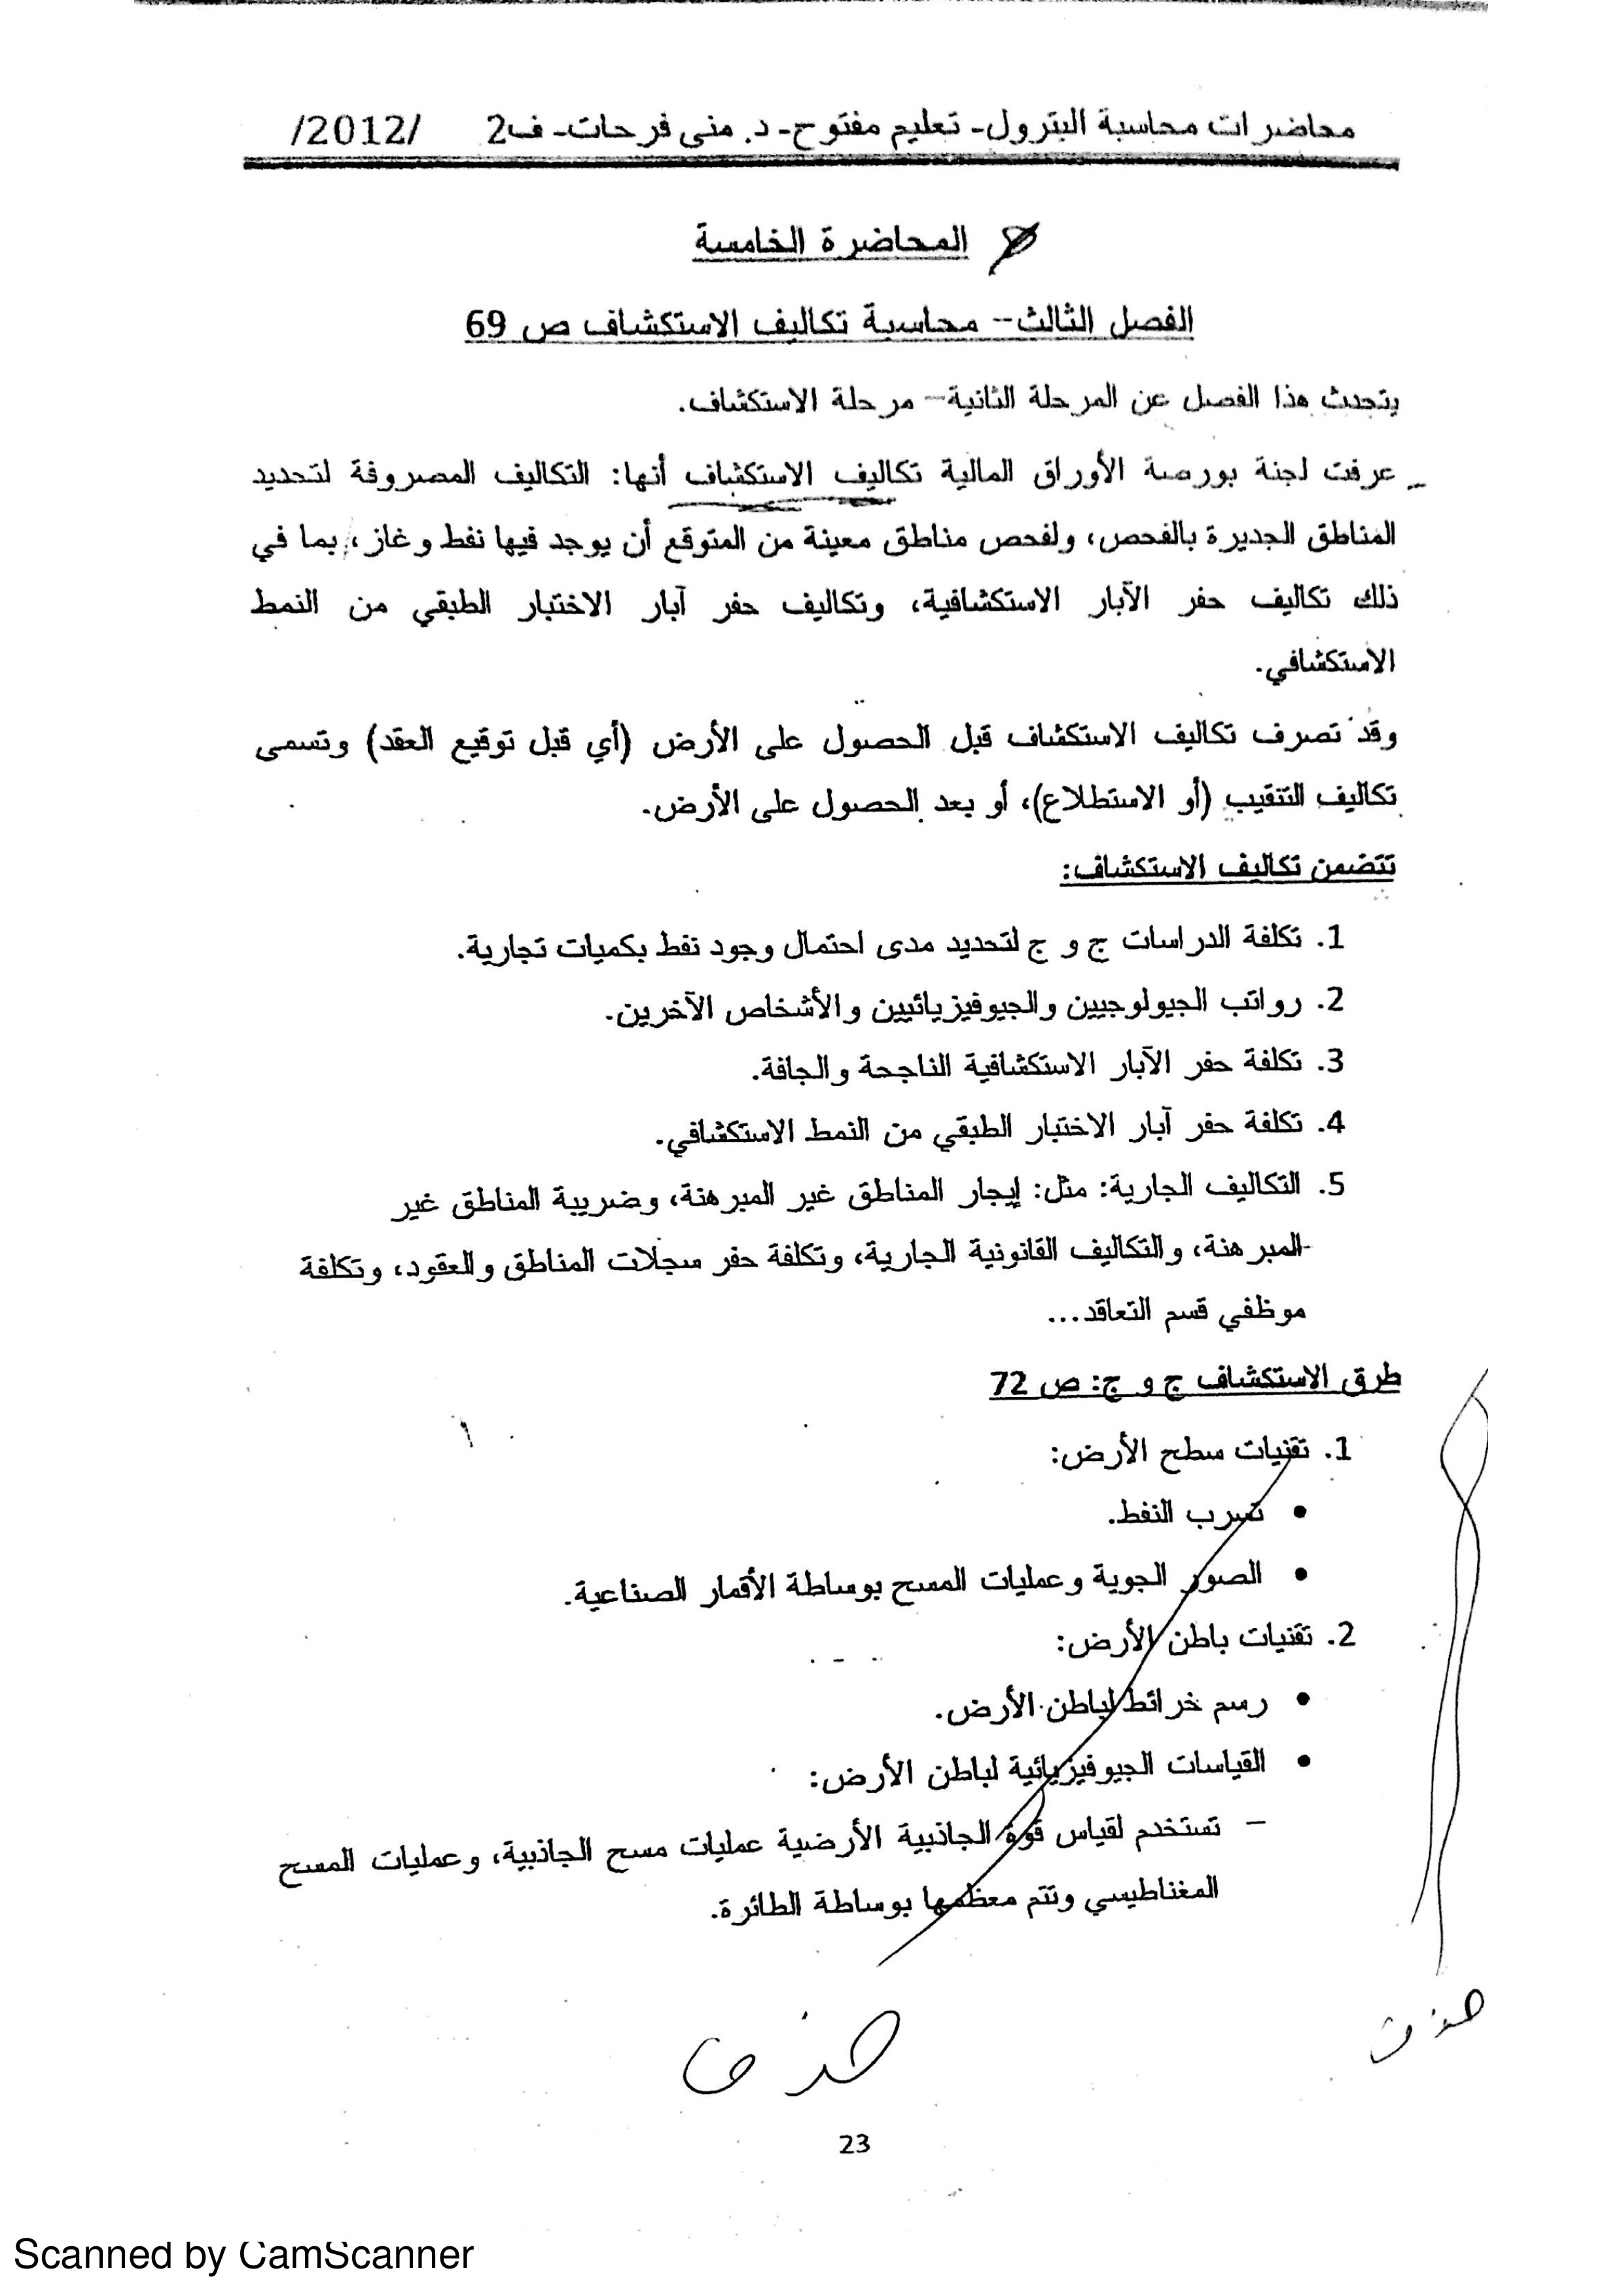 محاضرات محاسبة البترول- تعليم مفتوح- د. منى فرحات- ف2 /2012/
المحاضرة الخامسة
الفصل الثالث-- محاسبة تكاليف الاستكشاف ص 69
يتحدث هذا الفصل عن المرحلة الثانية- مرحلة الاستكشاف.
عرفت لجنة بورصة الأوراق المالية تكاليف الاستكشاف أنها: التكاليف المصروفة لتحديد
المناطق الجديرة بالفحص، ولفحص مناطق معينة من المتوقع أن يوجد فيها نفط وغاز، بما في
ذلك تكاليف حفر الآبار الاستكشافية، وتكاليف حفر آبار الاختبار الطبقي من النمط
الاستكشافي.
وقد تصرف تكاليف الاستكشاف قبل الحصول على الأرض (أي قبل توقيع العقد) وتسمى
تكاليف التنقيب (أو الاستطلاع)، أو بعد الحصول على الأرض.
تتضمن تكاليف الاستكشاف:
1. تكلفة الدراسات ج و ج لتحديد مدى احتمال وجود نفط بكميات تجارية.
2. رواتب الجيولوجيين والجيوفيزيائيين والأشخاص الآخرين.
3. تكلفة حفر الآبار الاستكشافية الناجحة والجافة.
4. تكلفة حفر آبار الاختبار الطبقي من النمط الاستكشافي.
5. التكاليف الجارية: مثل: إيجار المناطق غير المبرهنة، وضريبة المناطق غير
المبرهنة، والتكاليف القانونية الجارية، وتكلفة حفر سجلات المناطق والعقود، وتكلفة
موظفي قسم التعاقد...
طرق الاستكشاف ج و ج: ص 72
1. تقنيات سطح الأرض:
• تسرب النفط.
• الصور الجوية وعمليات المسح بوساطة الأقمار الصناعية.
2. تقنيات باطن الأرض:
• رسم خرائط لباطن الأرض.
• القياسات الجيوفيزيائية لباطن الأرض:
– تستخدم لقياس قوة الجاذبية الأرضية عمليات مسح الجاذبية، وعمليات المسح
المغناطيسي وتتم معظمها بوساطة الطائرة.
حذف
حذف
23
Scanned by CamScanner